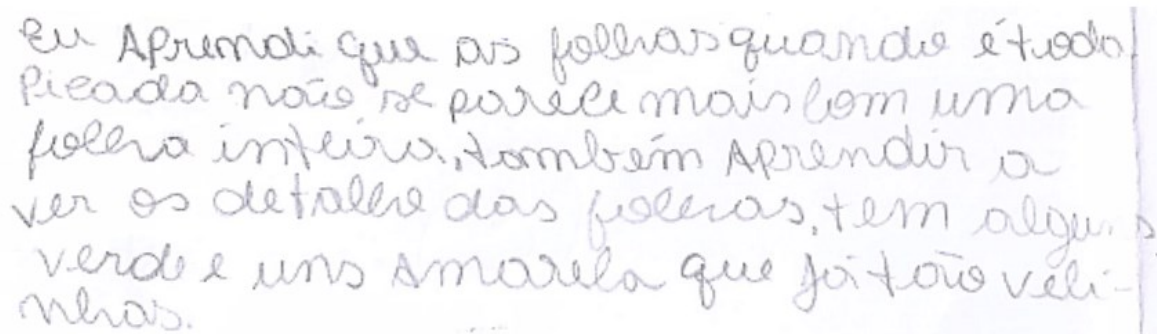 Eu Aprendi que as folhas quando é toda
Picada não se parece mais com uma
folha inteira, também Aprendir a
ver os detalhe das folhas, tem alguns
verde e uns Amarela que já tão veli-
nhas.